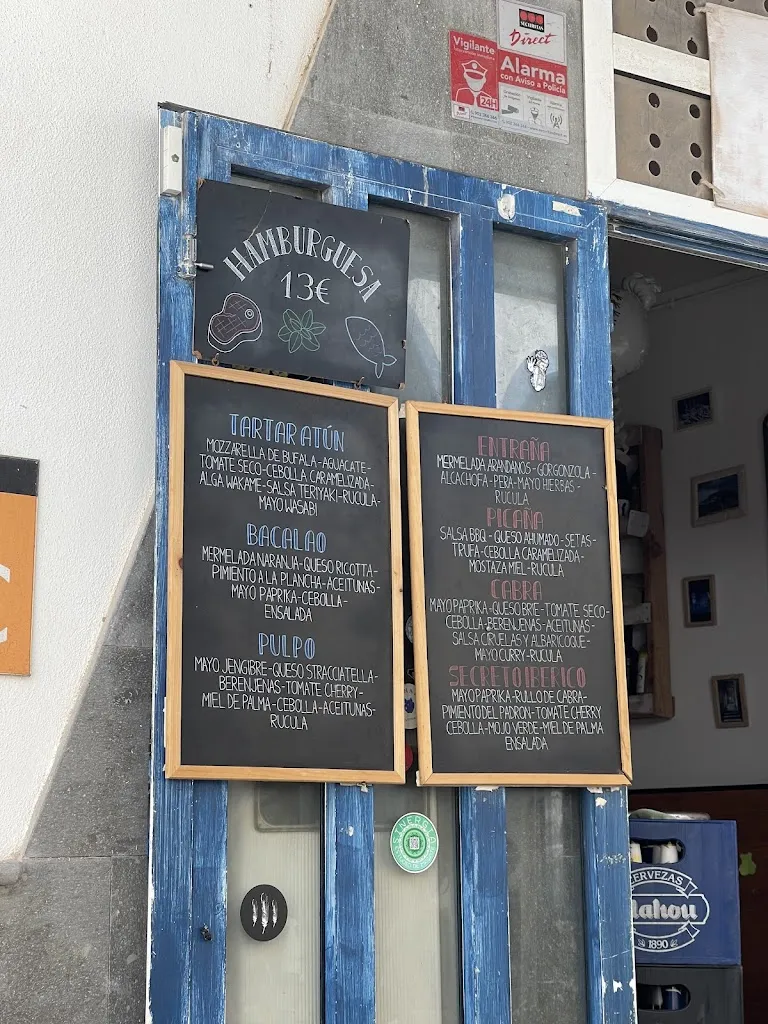 SECURITAS
Direct
Vigilante
24H
Alarma
con Aviso a Policía
HAMBURGUESA
13€
TARTAR ATÚN
MOZZARELLA DE BUFALA-AGUACATE-
TOMATE SECO-CEBOLLA CARAMELIZADA-
ALGA WAKAME-SALSA TERIYAKI-RUCULA-
MAYO WASABI
BACALAO
MERMELADA NARANJA-QUESO RICOTTA-
PIMIENTO A LA PLANCHA-ACEITUNAS-
MAYO PAPRIKA-CEBOLLA-
ENSALADA
PULPO
MAYO JENGIBRE-QUESO STRACCIATELLA-
BERENJENAS-TOMATE CHERRY-
MIEL DE PALMA-CEBOLLA-ACEITUNAS-
RUCULA
ENTRAÑA
MERMELADA ARANDANOS-GORGONZOLA-
ALCACHOFA-PERA-MAYO HIERBAS-
RUCULA
PICAÑA
SALSA BBQ-QUESO AHUMADO-SETAS-
TRUFA-CEBOLLA CARAMELIZADA-
MOSTAZA MIEL-RUCULA
CABRA
MAYO PAPRIKA-QUESO BRIE-TOMATE SECO-
CEBOLLA-BERENJENAS-ACEITUNAS-
SALSA CIRUELAS Y ALBARICOQUE-
MAYO CURRY-RUCULA
SECRETO IBERICO
MAYO PAPRIKA-RULLO DE CABRA-
PIMIENTO DEL PADRON-TOMATE CHERRY
CEBOLLA-MOJO VERDE-MIEL DE PALMA
ENSALADA
CERVEZAS
Mahou
1890